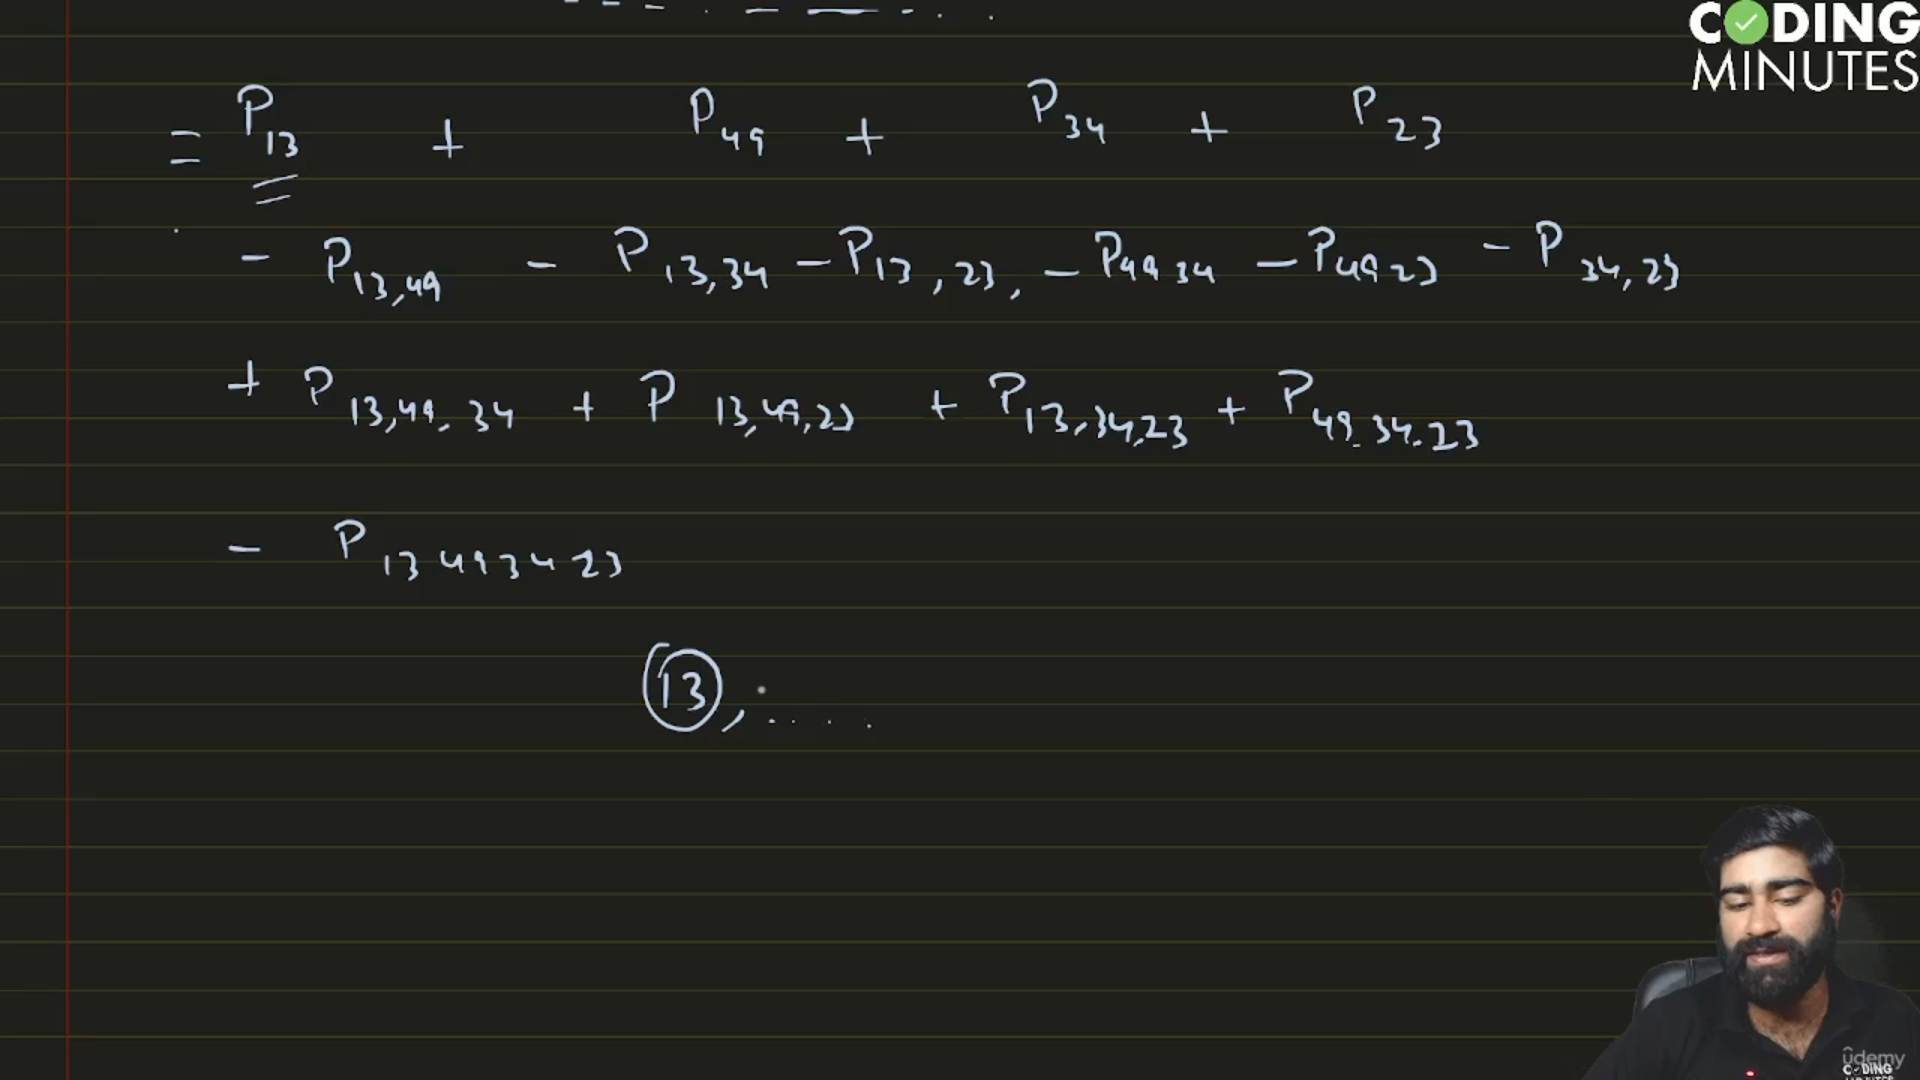 CODING
MINUTES
= P13 + P49 + P34 + P23
- P13,49 - P13,34 - P13,23, - P49 34 - P49 23 - P34,23
+ P13,49,34 + P13,49,23 + P13,34,23 + P49.34.23
- P13 49 34 23
13, ....
udemy
CODING